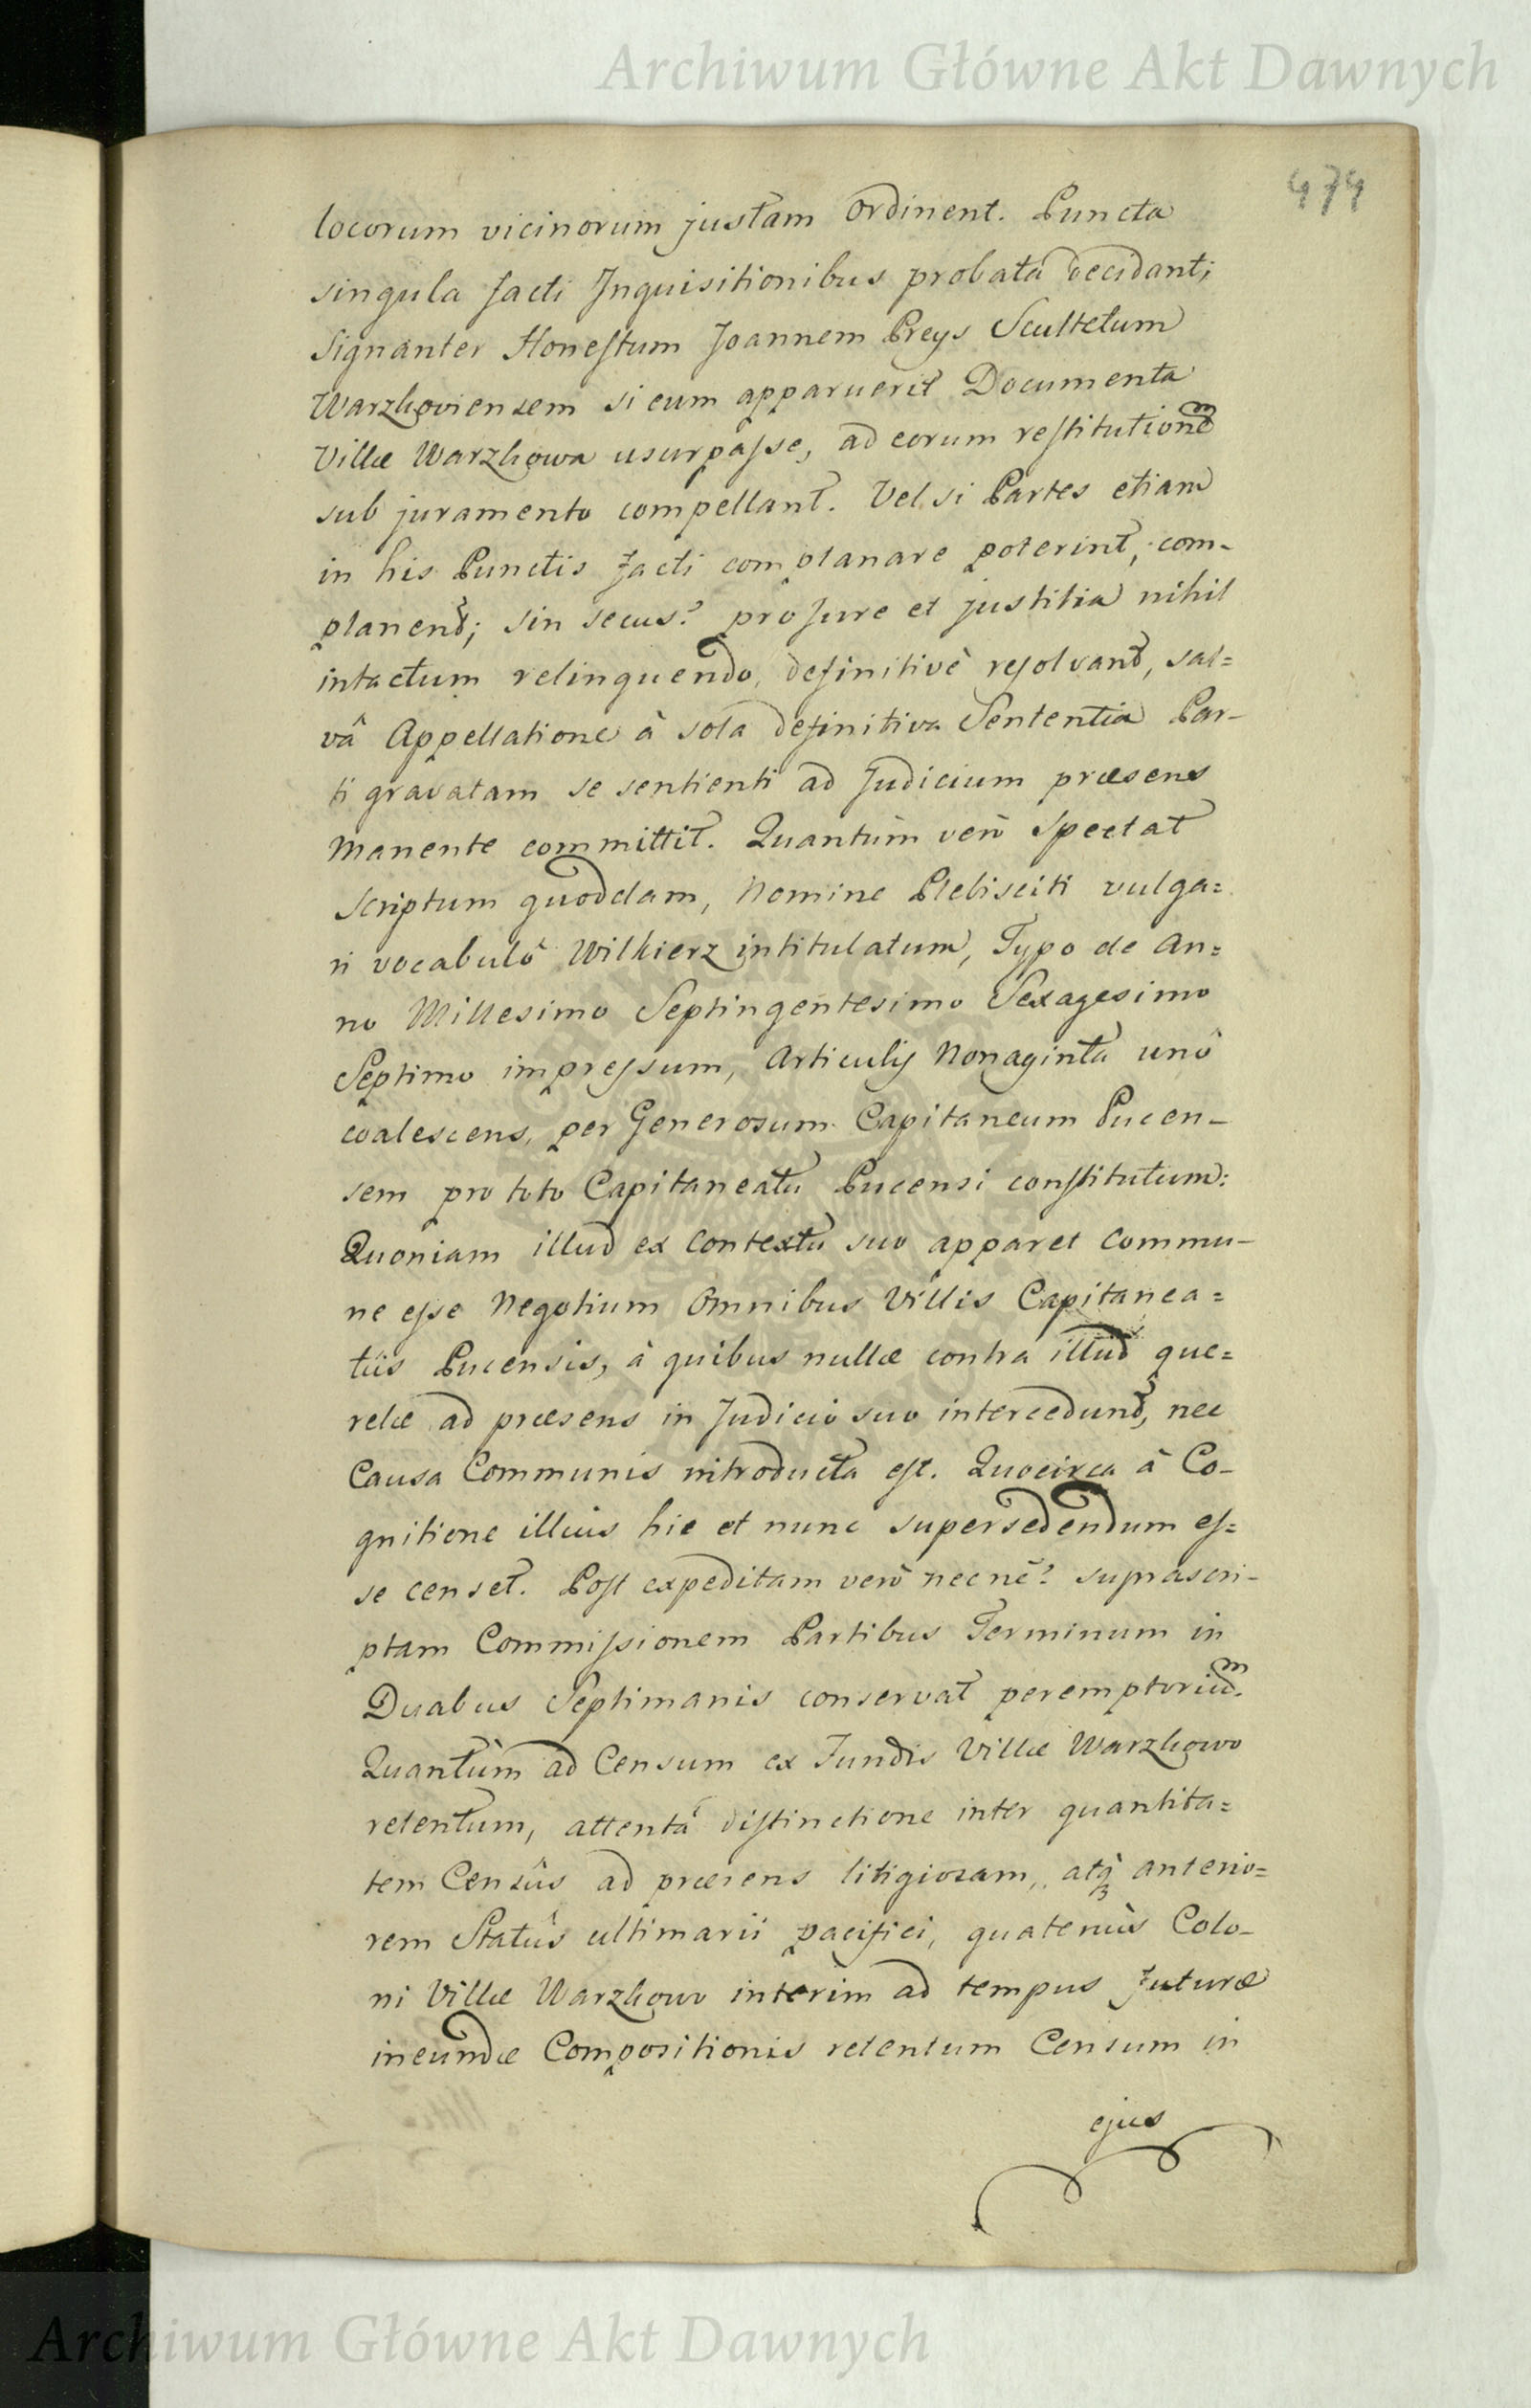 Archiwum Główne Akt Dawnych
474
locorum vicinorum justam ordinent. Puncta
singula facti Inquisitionibus probata decidant;
Signanter Honestum Joannem Preys Scultetum
Warzkoviensem si eum apparuerit Documenta
Villæ Warzkowa usurpasse, ad eorum restitutionem
sub juramento compellant. Vel si Partes etiam
in his Punctis facti complanare poterint, com-
planent; sin secus? pro Jure et justitia nihil
intactum relinquendo, definitivè resolvant, sal=
vâ Appellatione à sola definitiva Sententia Par-
ti gravatam se sentienti ad Judicium præsens
manente committit. Quantùm verò Spectat
Scriptum quoddam, Nomine Plebisciti vulga=
ri vocabulô Wilkierz intitulatum, Typo de An=
no Millesimo Septingentesimo Sexagesimo
Septimo impressum, Articulis Nonaginta unô
coalescens, per Generosum Capitaneum Pucen-
sem pro toto Capitaneatu Pucensi constitutum:
Quoniam illud ex Contextu suo apparet Commu-
ne esse Negotium Omnibus Villis Capitanea=
tûs Pucensis, à quibus nullæ contra illud que=
relæ ad præsens in Judicio suo intercedunt, nec
Causa Communis introducta est. Quocirca à Co-
gnitione illius hic et nunc supersedendum es=
se censet. Post expeditam verò necnè? suprascri-
ptam Commissionem Partibus Terminum in
Duabus Septimanis conservat peremptorium.
Quantùm ad Censum ex Fundis Villæ Warzkowo
retentum, attentâ distinctione inter quantita=
tem Censûs ad præsens litigiosam, atq₃ anterio=
rem Statûs ultimarii pacifici, quatenùs Colo-
ni Villæ Warzkowo interim ad tempus futuræ
ineundæ Compositionis retentum Censum in
ejus
Archiwum Główne Akt Dawnych